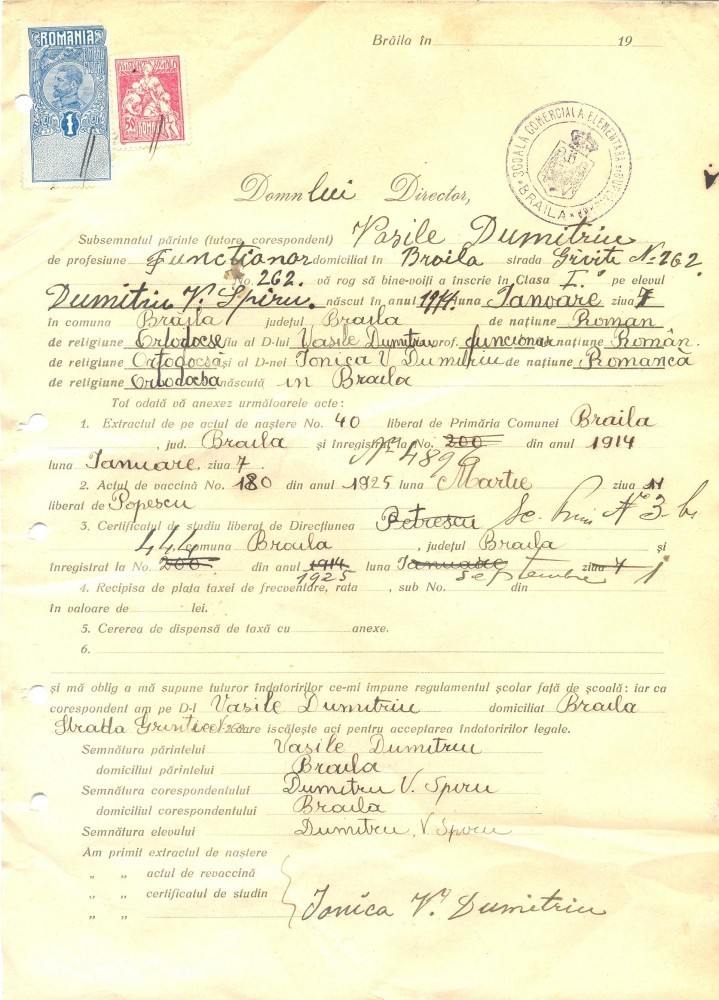 ROMANIA
1
Brăila în 19
SCOALA COMERCIALA ELEMENTARA
BRAILA
Domnlui Director,
Subsemnatul părinte (tutore, corespondent) Vasile Dumitriu
de profesiune Funcționar domiciliat în Broila strada Grivitei No 262
No. 262. vă rog să bine-voiți a înscrie în Clasa I. pe elevul
Dumitriu V. Spiru. născut în anul 1914 luna Ianoare ziua 7
în comuna Brăila județul Braila de națiune Roman
de religiune Ortodocse fiu al D-lui Vasile Dumitriu prof. funcționar națiune Român.
de religiune Ortodocsă și al D-nei Ionica V. Dumitriu de națiune Romancă
de religiune Ortodocsa născută in Braila
Tot odată vă anexez următoarele acte:
1. Extractul de pe actul de naștere No. 40 liberat de Primăria Comunei Braila
, jud. Braila și înregistrat la No. 200 din anul 1914
No 4896
luna Ianuare, ziua 7.
2. Actul de vaccină No. 180 din anul 1925 luna Martie ziua 11
liberat de Popescu
3. Certificatul de studiu liberat de Direcțiunea Petrescu Sc. Prim No 3 b.
444 comuna Braila, județul Braila și
înregistrat la No. 200. din anul 1914 luna Ianuare ziua 7
1925 septembre 1
4. Recipisa de plata taxei de frecventare, rata , sub No. din
în valoare de lei.
5. Cererea de dispensă de taxă cu anexe.
6.
și mă oblig a mă supune tuturor îndatoririlor ce-mi impune regulamentul școlar față de școală: iar ca
corespondent am pe D-l Vasile Dumitriu domiciliat Braila
Strada No 262 care iscălește aci pentru acceptarea îndatoririlor legale.
Semnătura părintelui Vasile Dumitriu
domiciliul părintelui Braila
Semnătura corespondentului Dumitriu V. Spiru
domiciliul corespondentului Braila
Semnătura elevului Dumitriu. V Spiru
Am primit extractul de naștere
„ „ actul de revaccină
„ „ certificatul de studin
„ „
Ionica V. Dumitriu